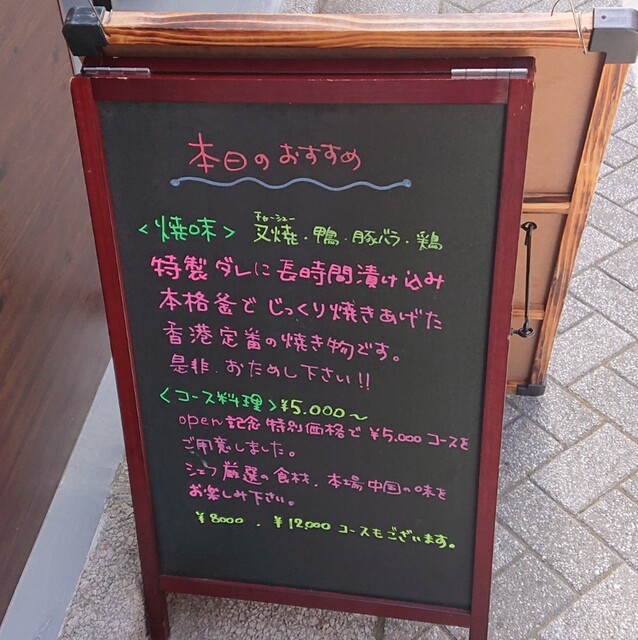 本日のおすすめ
チャーシュー
<焼味> 叉焼・鴨・豚バラ・鶏
特製ダレに長時間漬け込み
本格釜でじっくり焼きあげた
香港定番の焼き物です。
是非、おためし下さい!!
<コース料理>¥5.000〜
open記念 特別価格で ¥5,000 コースを
ご用意しました。
シェフ厳選の食材、本場中国の味を
お楽しみ下さい。
¥8000 、¥12,000 コースもございます。